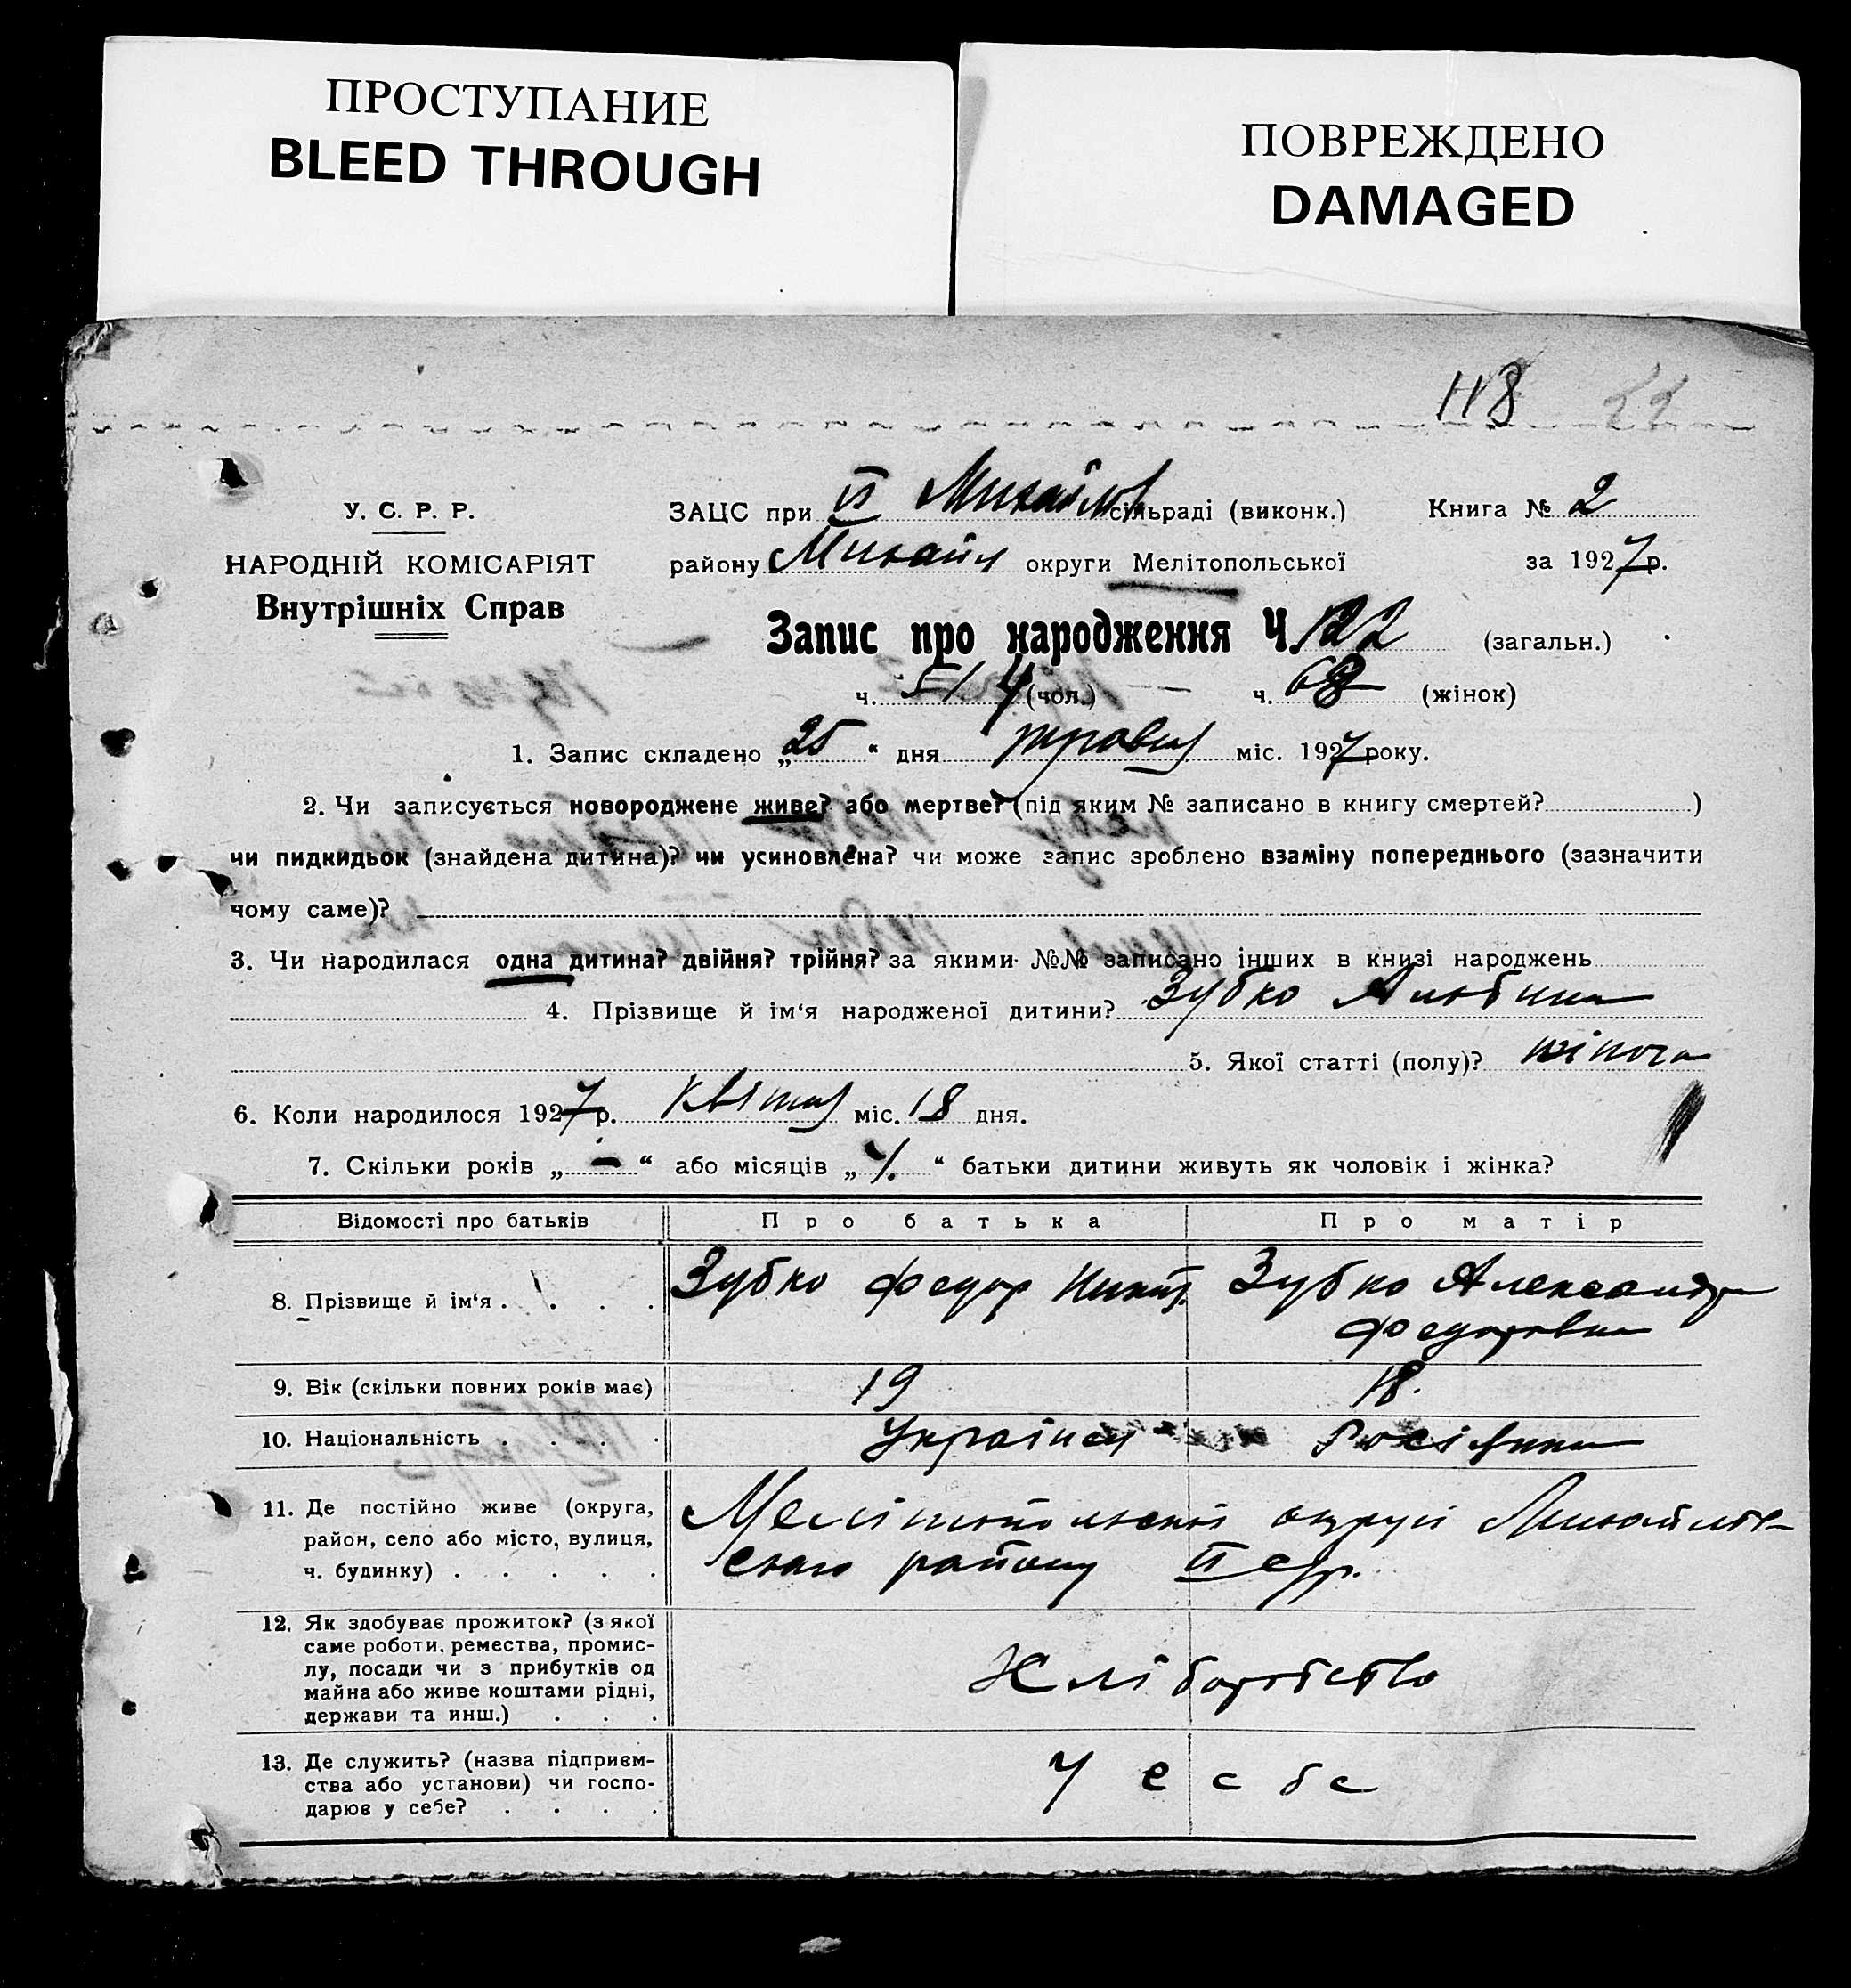 ПРОСТУПАНИЕ
BLEED THROUGH
ПОВРЕЖДЕНО
DAMAGED
118
У. С. Р. Р.
НАРОДНІЙ КОМІСАРІЯТ
Внутрішніх Справ
ЗАЦС при II Михайлів сільраді (виконк.) Книга № 2
району Михайл округи Мелітопольської за 1927 р.
Запис про народження Ч. 122 (загальн.)
ч. (чол.) ч. 68 (жінок)
1. Запис складено „25“ дня травня міс. 1927 року.
2. Чи записується новороджене живе? або мертве? (під яким № записано в книгу смертей? )
чи пидкидьок (знайдена дитина)? чи усиновлена? чи може запис зроблено взаміну попереднього (зазначити
чому саме)?
3. Чи народилася одна дитина? двійня? трійня? за якими №№ записано інших в книзі народжень
4. Прізвище й ім‘я народженої дитини? Зубко Альбина
5. Якої статті (полу)? жіноча
6. Коли народилося 1927 р. квітня міс. 18 дня.
7. Скільки років „—“ або місяців „ “ батьки дитини живуть як чоловік і жінка?
Відомості про батьків Про батька Про матір
8. Прізвище й ім‘я . . . . Зубко Федор Никит. Зубко Александра
Федоровна
9. Вік (скільки повних років має) 19 18.
10. Національність . . . . Українец Росіянка
11. Де постійно живе (округа,
район, село або місто, вулиця,
ч. будинку) . . . . .
Мелітопольскої округи Михайлів-
ского району II сср.
12. Як здобуває прожиток? (з якої
саме роботи, ремества, промис-
лу, посади чи з прибутків од
майна або живе коштами рідні,
держави та инш.) . . .
Хліборобство
13. Де служить? (назва підприєм-
ства або установи) чи госпо-
дарює у себе? . . . .
У себе